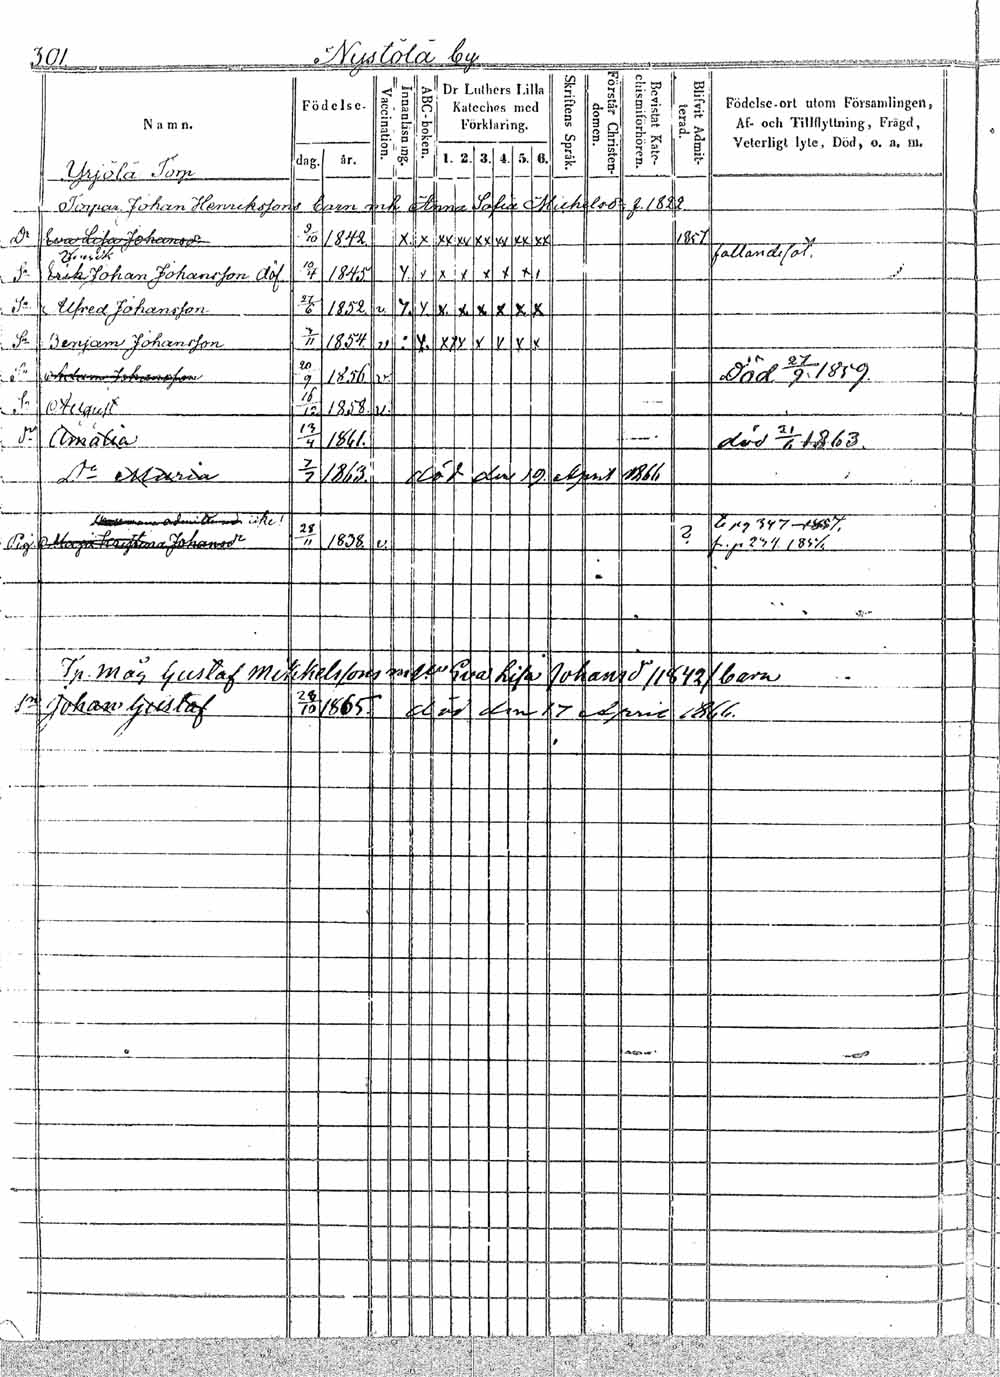 301 Nystölä by
Namn. Födelse- dag. år. Vaccination. Innanläsning. ABC-boken. Dr Luthers Lilla Kateches med Förklaring. 1. 2. 3. 4. 5. 6. Skriftens Språk. Förstår Christendomen. Bevistat Katechismiförhören. Blifvit Admitterad. Födelse-ort utom Församlingen, Af- och Tillflyttning, Frägd, Veterligt lyte, Död, o. a. m.
Yrjölä Torp
Torpar. Johan Henrikssons barn mh Anna Sofia Michelsdr f. 1822
Dr Eva Lisa Johansdr 9/10 1842 x x xx xx xx xx xx xx 1857
fallandesot.
Henrik
Sn Erik Johan Johansson döf 10/4 1845
Sn Alfred Johansson 27/6 1852 v.
Sn Benjam Johansson 7/11 1854 v
Sn Adam Johansson 20/9 1856 v. Död 27/9 1859.
Sn August 16/12 1858. v.
Dr Amalia 13/4 1861. död 21/6 1863.
Dr Maria 7/7 1863. död den 19. April 1866
icke!
Pig. Maja Kristina Johansdr 28/11 1838 v. ?
Tp. måg Gustaf Mikkelssons m Eva Lisa Johansd /1842/ barn
Sn Johan Gustaf 28/10 1865. död den 17 April 1866.